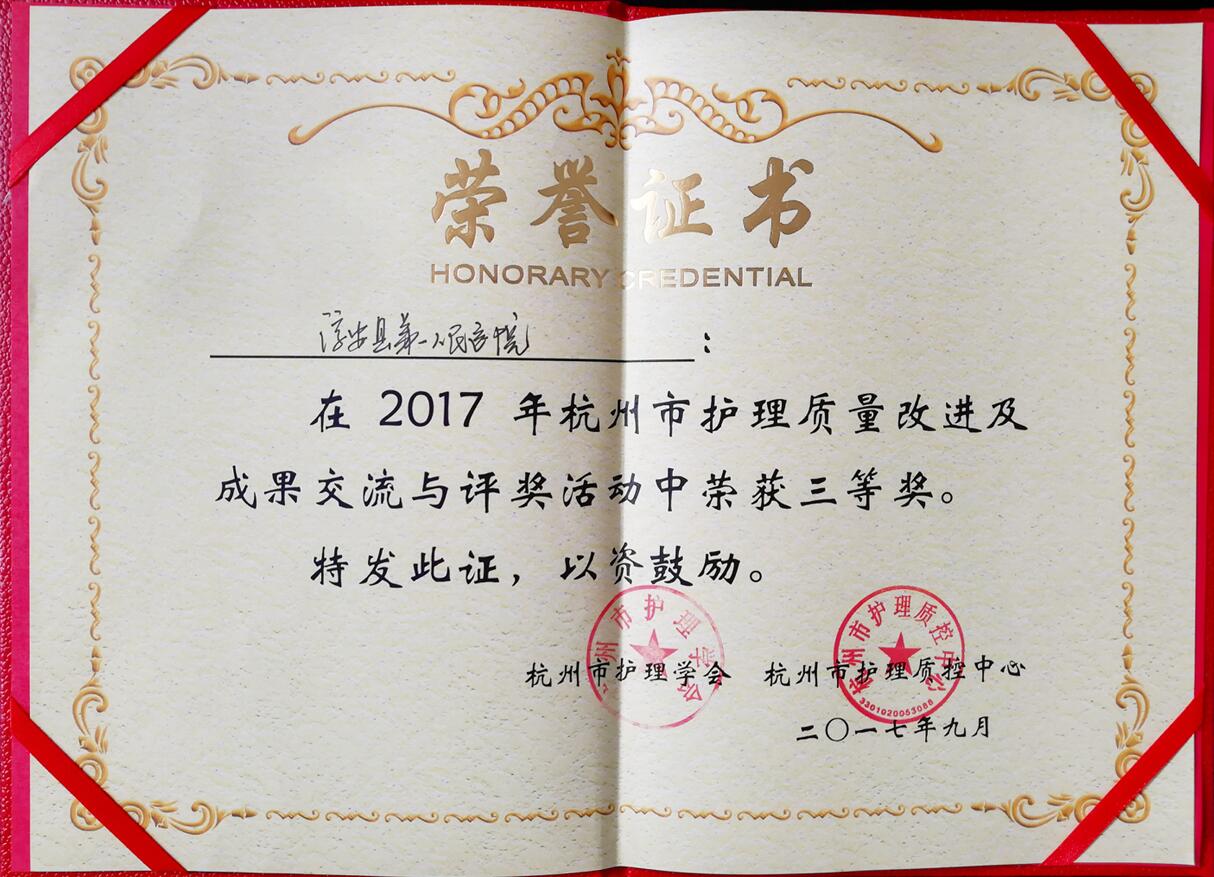 荣誉证书
HONORARY CREDENTIAL
淳安县第一人民医院：
在 2017 年杭州市护理质量改进及
成果交流与评奖活动中荣获三等奖。
特发此证，以资鼓励。
杭州市护理学会 杭州市护理质控中心
二〇一七年九月
杭州市护理学会
杭州市护理质控中心
3301020053088